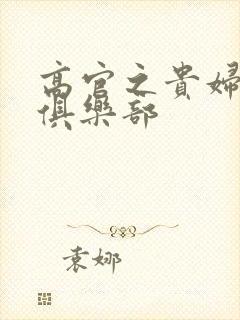 高官之貴婦
俱樂部
袁娜